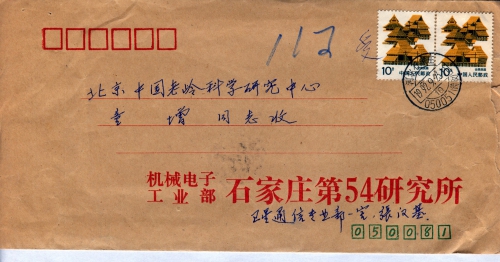 112
10分 中国人民邮政
10分 中国人民邮政
北京中国老龄科学研究中心
增同志收
机械电子
工业部
石家庄第54研究所
卫星通信专业部一室 張汉基
050081